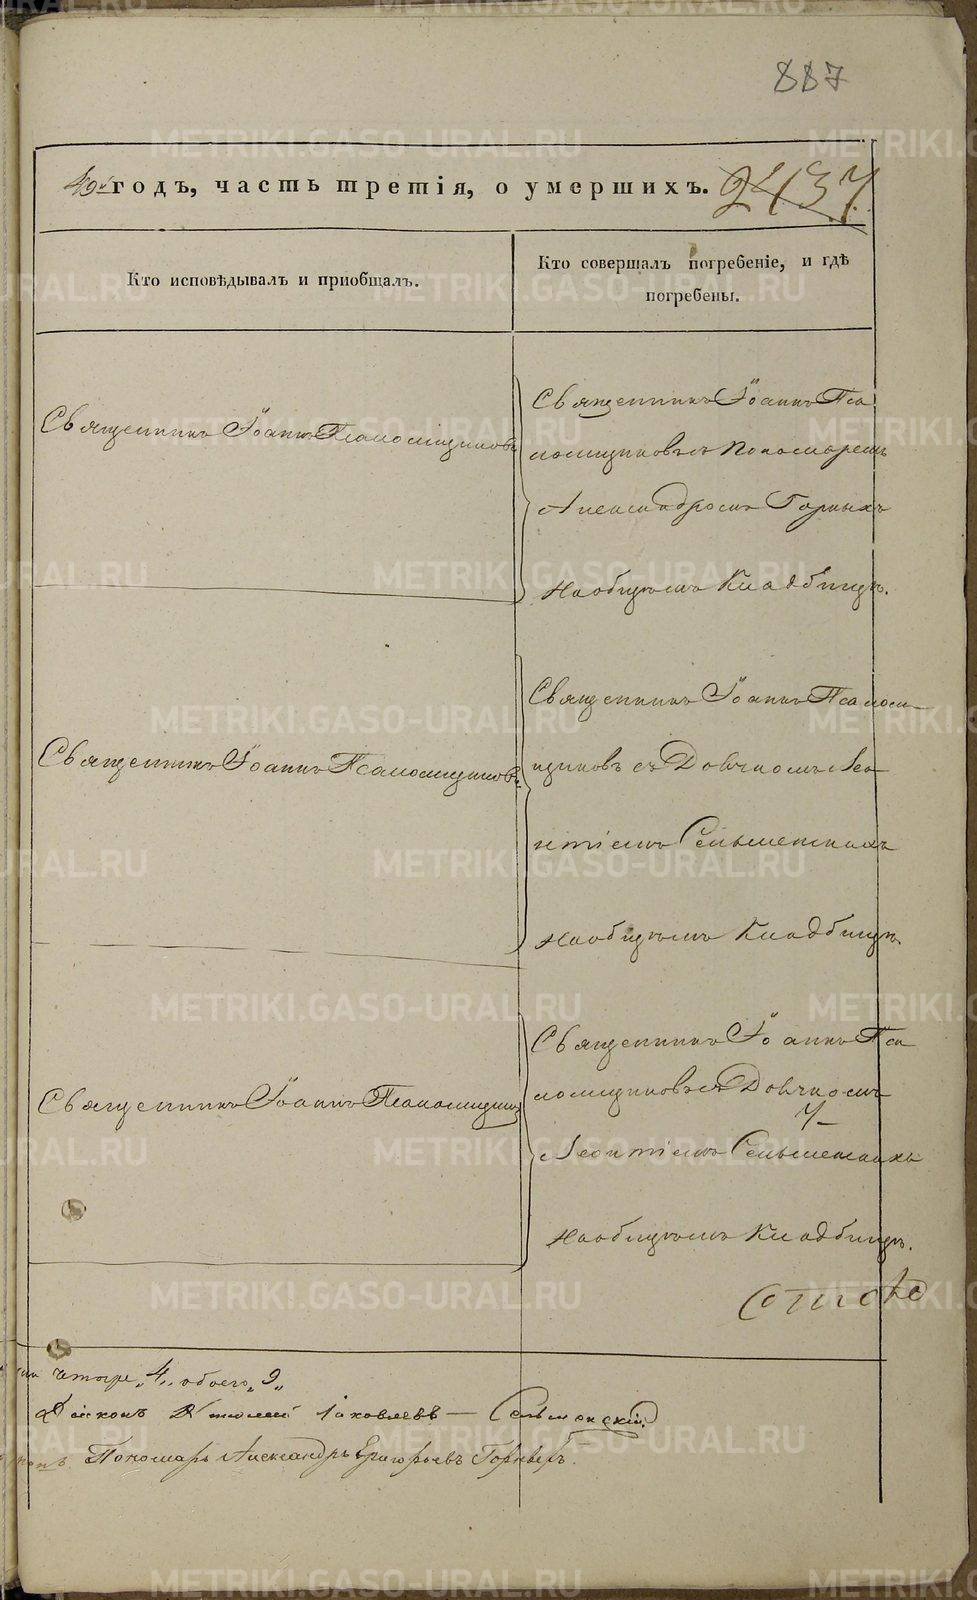 887
49й годъ, часть третія, о умершихъ. 2437
Кто исповѣдывалъ и приобщалъ.
Кто совершалъ погребеніе, и гдѣ
погребены.
Священникъ Іоаннъ Псаломщиковъ
Священникъ Іоаннъ Пса
ломщиковъ съ Пономаремъ
Александромъ Горныхъ
На общемъ Кладбищѣ.
Священникъ Іоаннъ Псаломщиковъ
Священникъ Іоаннъ Псалом-
щиковъ съ Дьячкомъ Лео
нтіемъ
На общемъ Кладбищѣ
Священникъ Іоаннъ Псаломщиковъ
Священникъ Іоаннъ Пса
ломщиковъ съ Дьячкомъ
Леонтіемъ
На общемъ Кладбищѣ.
четыре „4„ обоего „9„
Діаконъ Яковлевъ —
Пономарь Александръ Григорьевъ
METRIKI.GASO-URAL.RU